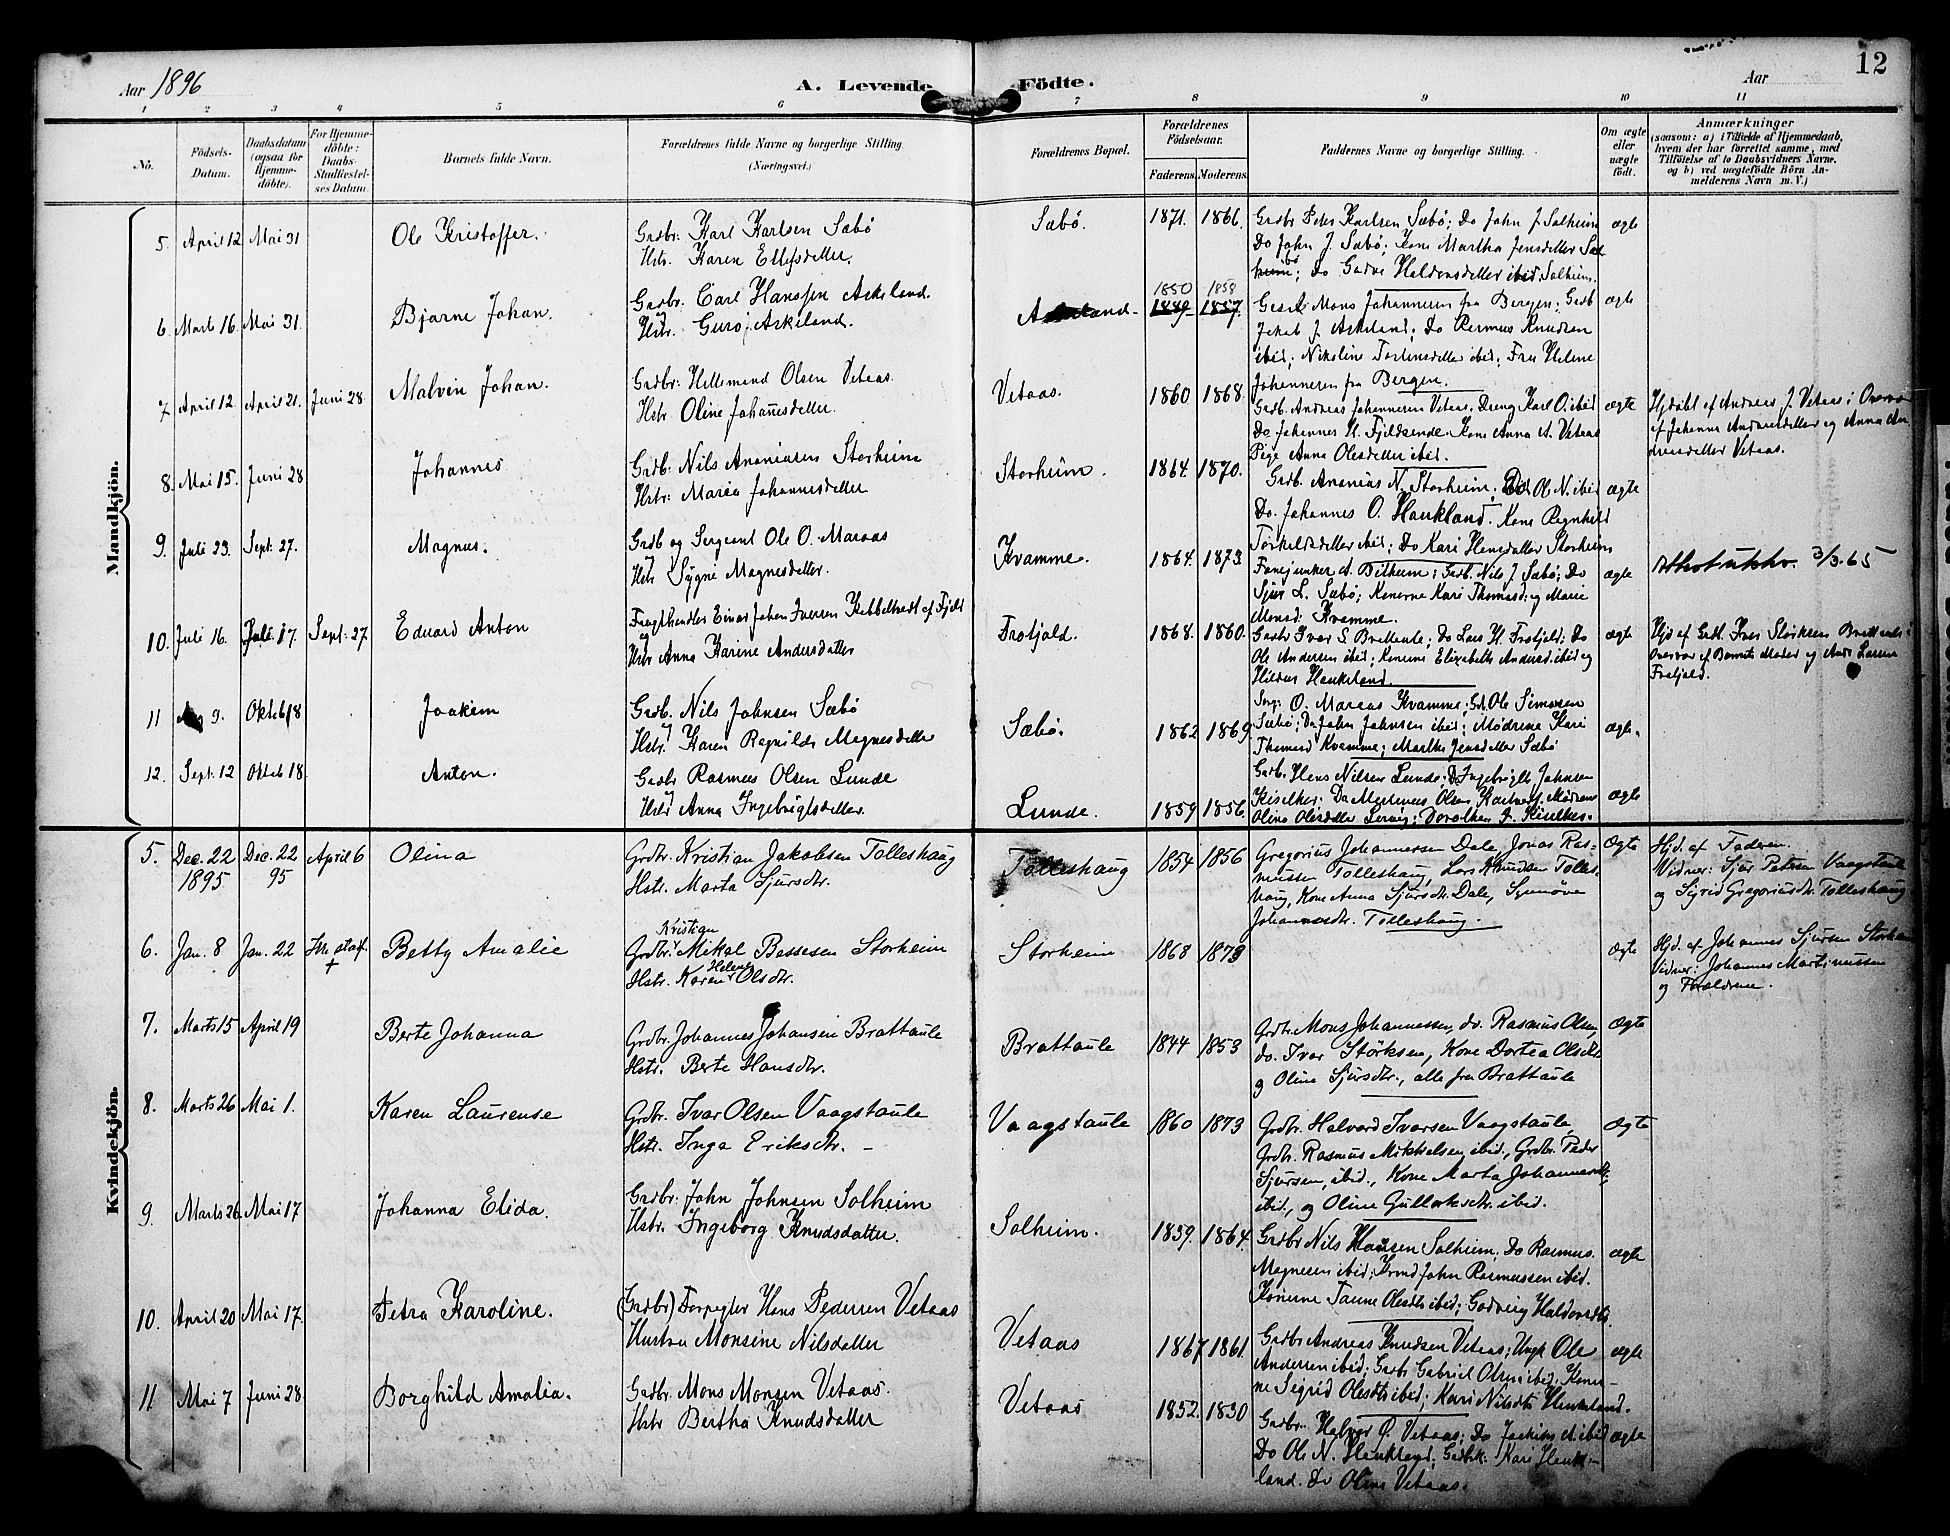 Aar 1896
A. Levende Födte.
Aar
12
1 2 3 4 5 6 7 8 9 10 11
No.
Födsels-Datum.
Daabsdatum (ogsaa for Hjemme-döbte).
For Hjemme-döbte: Daabs-Stadfæstel-ses Datum.
Barnets fulde Navn.
Forældrenes fulde Navne og borgerlige Stilling (Næringsvei.)
Forældrenes Bopæl.
Forældrenes Födselsaar.
Faderens. Moderens.
Faddernes Navne og borgerlige Stilling.
Om ægte eller uægte födt.
Anmærkninger
(saasom: a) i Tilfælde af Hjemmedaab,
hvem der har forrettet samme, med
Tilföielse af to Daabsvidners Navne,
og b) ved uægtefödte Börn An-
melderens Navn m. V.)
Mandkjön.
5. April 12 Mai 31 Ole Kristoffer. Gadbr. Karl Karlsen Sæbö Sæbö. 1871. 1866. Gadbr Peder Karlsen Sæbö; Do John J. Solheim ægte
Hstr. Karen Ellefsdatter.
Do John J. Sæbö; Kone Martha Jensdatter Sol
heim; Do Gadve Haldorsdatter ibid. Solheim.
6. Marts 16. Mai 31. Bjarne Johan. Gadbr. Carl Hanssen Askeland. Askeland 1850 1858 1849 1857. Mons Johannesen fra Bergen; Gadb ægte
Hstr. Guro Askeland.
Jakob J. Askeland; Do Rasmus Knudsen
ibid; Nikoline Torbensdatter ibid; Frø Helene
Johannesen fra Bergen.
7. April 12. April 21. Juni 28. Malvin Johan. Gadbr. Hellemand Olsen Vetaas. Vetaas. 1860 1868. Gadb. Andreas Johannesen Vetaas. Dreng Karl O. ibid ægte
Hstr Oline Johannesdatter.
Do Johannes H. Fjeldsende. Kone Anna A. Vetaas
Pige Anna Olesdatter ibid.
Hjdöbt af Andreas J. Vetaas i Overvær
af Johanna Andreasdatter og Anna An
dreasdatter Vetaas.
8. Mai 15. Juni 28 Johannes Gadb. Nils Ananiassen Storheim Storheim. 1864. 1870. Gadb. Ananias N. Storheim; Do Ole N. ibid ægte
Hstr. Maria Johannesdatter
Do. Johannes O. Haukland. Kone Ragnhild
Torkildsdatter ibid; Do Kari Hansdatter Storheim
9. Juli 23. Sept. 27. Magnus. Gadb og Sergeant Ole O. Maraas Kvamme. 1864. 1873 Fanejunker A. Bilheim; Gadb. Nils J. Sæbö; Do ægte
Hstr Sygni Magnesdatter.
Sjur L. Sæbö; Konerne Kari Thomasd; og Marie
Monsd; Kvamme.
3/3.65
10. Juli 16. Juli 17. Sept. 27. Eduard Anton Einar Johan Iversen af Fjeld Frotjold. 1868. 1860. Gadbr Ivar S. Brattaule; Do Lars H. Frotjold; Do ægte
Hstr Anna Karine Andersdatter
Ole Andersen ibid; Konerne Elizabeth Andersd. ibid og
Hildur Haukeland.
Hjd af Gadb. Iver Störksen Brattaule i
Overvær af Barnets Moder og Andr. Larsen
Frotjold.
11 9. Oktob 18 Joakim Gadb. Nils Johnsen Sæbö Sæbö. 1862 1869. Serg. O. Maraas Kvamme; Gd. Ole Simonsen ægte.
Hstr. Karen Ragnilde Magnesdatter
Sæbö; Do John Johnsen ibid; Mödrene Kari
Thomasd Kvamme; Martha Jensdatter Sæbö
12. Sept. 12 Oktob 18. Anton. Gadbr Rasmus Olsen Lunde Lunde. 1859 1856. Gadb. Hans Nilsen Lunde; Do Ingebrigt Johnsen ægte
Hstr Anna Ingebrigtsdatter.
Kiselker; Do Martinus Olsen
Olina Olesdatter Lervig; Dorothea J. Kiselker.
Kvindekjön.
5. Dec. 22 1895 Dec. 22 95 April 6 Olina Grdbr. Kristian Jakobsen Tolleshaug Tolleshaug 1854 1856 Gregorius Johannessen Dale, Jonas Ras- Ægte
Hstr. Marta Sjursdtr.
mussen Tolleshaug, Lars Knudsen Tolles-
haug, Kone Anna Sjursdtr. Dale, Synnöve
Johannesdtr. Tolleshaug.
Hjd. af Faderen.
Vidner: Sjur Petersen Vaagstaule
og Sigrid Gregoriusdtr. Tolleshaug
6. Jan. 8 Jan. 22 In. stadf. † Betty Amalie Grdbr. Kristian Mikal Bessesen Storheim Storheim 1868 1873 Ægte
Hstr. Karen Helene Olsdtr.
Hjd. af Johannes Sjursen Storheim
Vidner: Johannes Martinussen
og Forældrene.
7. Marts 15 April 19 Berte Johanna Grdbr. Johannes Johansen Brattaule Brattaule 1844 1853 Grdbr. Mons Johannessen, do. Rasmus Olsen, Ægte
Hstr. Berte Hansdtr.
do. Ivar Störksen, Kone Dortea Olsdtr
og Olina Sjursdtr., alle fra Brattaule
8. Marts 26 Mai 1. Karen Laurense Grdbr. Ivar Olsen Vaagstaule Vaagstaule 1860 1873 Grdbr. Halvord Ivarsen Vaagstaule, Ægte
Hstr. Inga Eriksdtr. –
Grdbr. Rasmus Mikkelsen ibid., Grdbr. Peder
Sjursen, ibid., Kone Marta Johannesdtr.
ibid., og Oline Gullaksdtr. ibid.
9. Marts 26. Mai 17 Johanna Elida. Gadbr. John Johnsen Solheim Solheim. 1839. 1864. Gadbr Nils Hansen Solheim; Do Rasmus ægte
Hstr. Ingeborg Knudsdatter.
Magnesen ibid; John Rasmussen ibid.
Konerne Olesdtr ibid; Haldorsdtr.
10. April 20 Mai 17. Petra Karoline. (Gadbr) Forpagter Hans Pedersen Vetaas Vetaas 1867 1861. Gadbr Andreas Knudsen Vetaas; Ungk Ole ægte
Hustru Monsine Nilsdatter
Andersen ibid; Gadbr Gabriel Olsen ibid; Koner-
ne Sigrid Olesdtr ibid; Kari Nilsdtr Haukeland.
11 Mai 7 Juni 28 Borghild Amalia. Gadbr. Mons Monsen Vetaas. Vetaas 1852. 1850 Gadbr. Halvor O. Vetaas; Do Joakim A. ibid ægte
Hstr Bertha Knudsdatter
Do Ole N. Haukland; Kari Hauk-
land. Do Oline Vetaas.